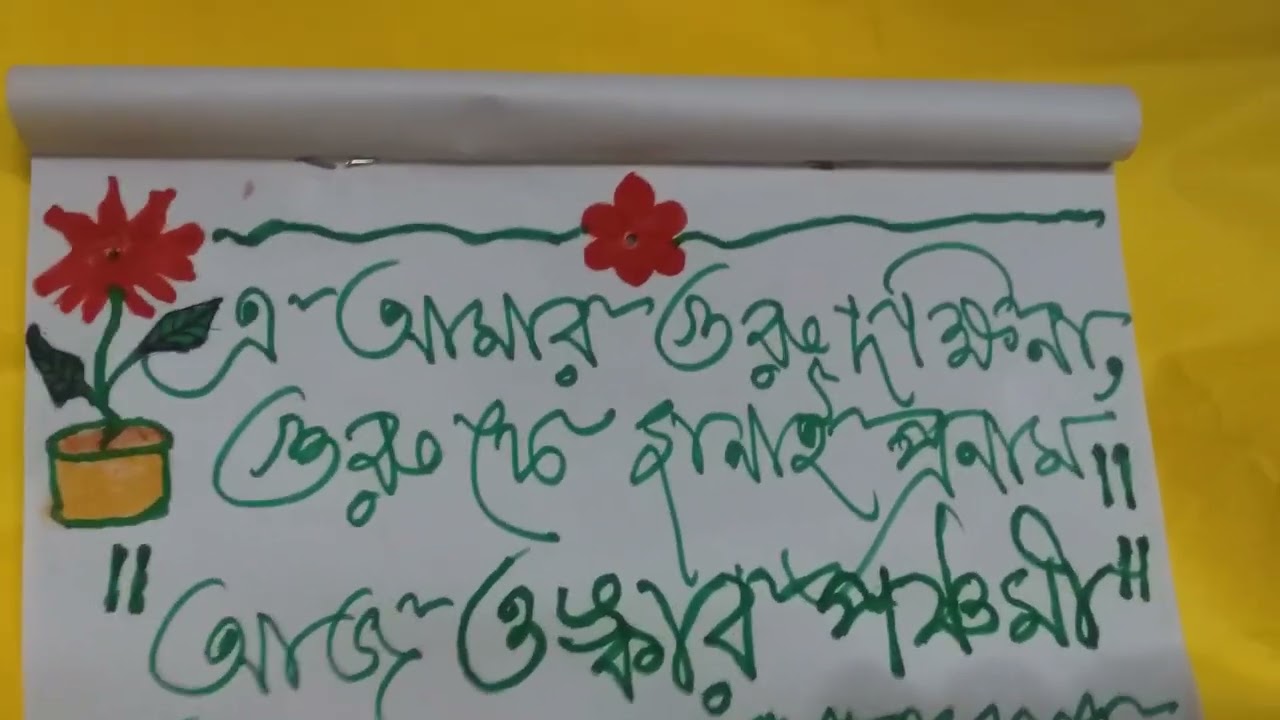 এ আমার গুরু দক্ষিনা,
গুরু কে জানাই প্রনাম॥
"আজ ওঙ্কার পঞ্চমী"